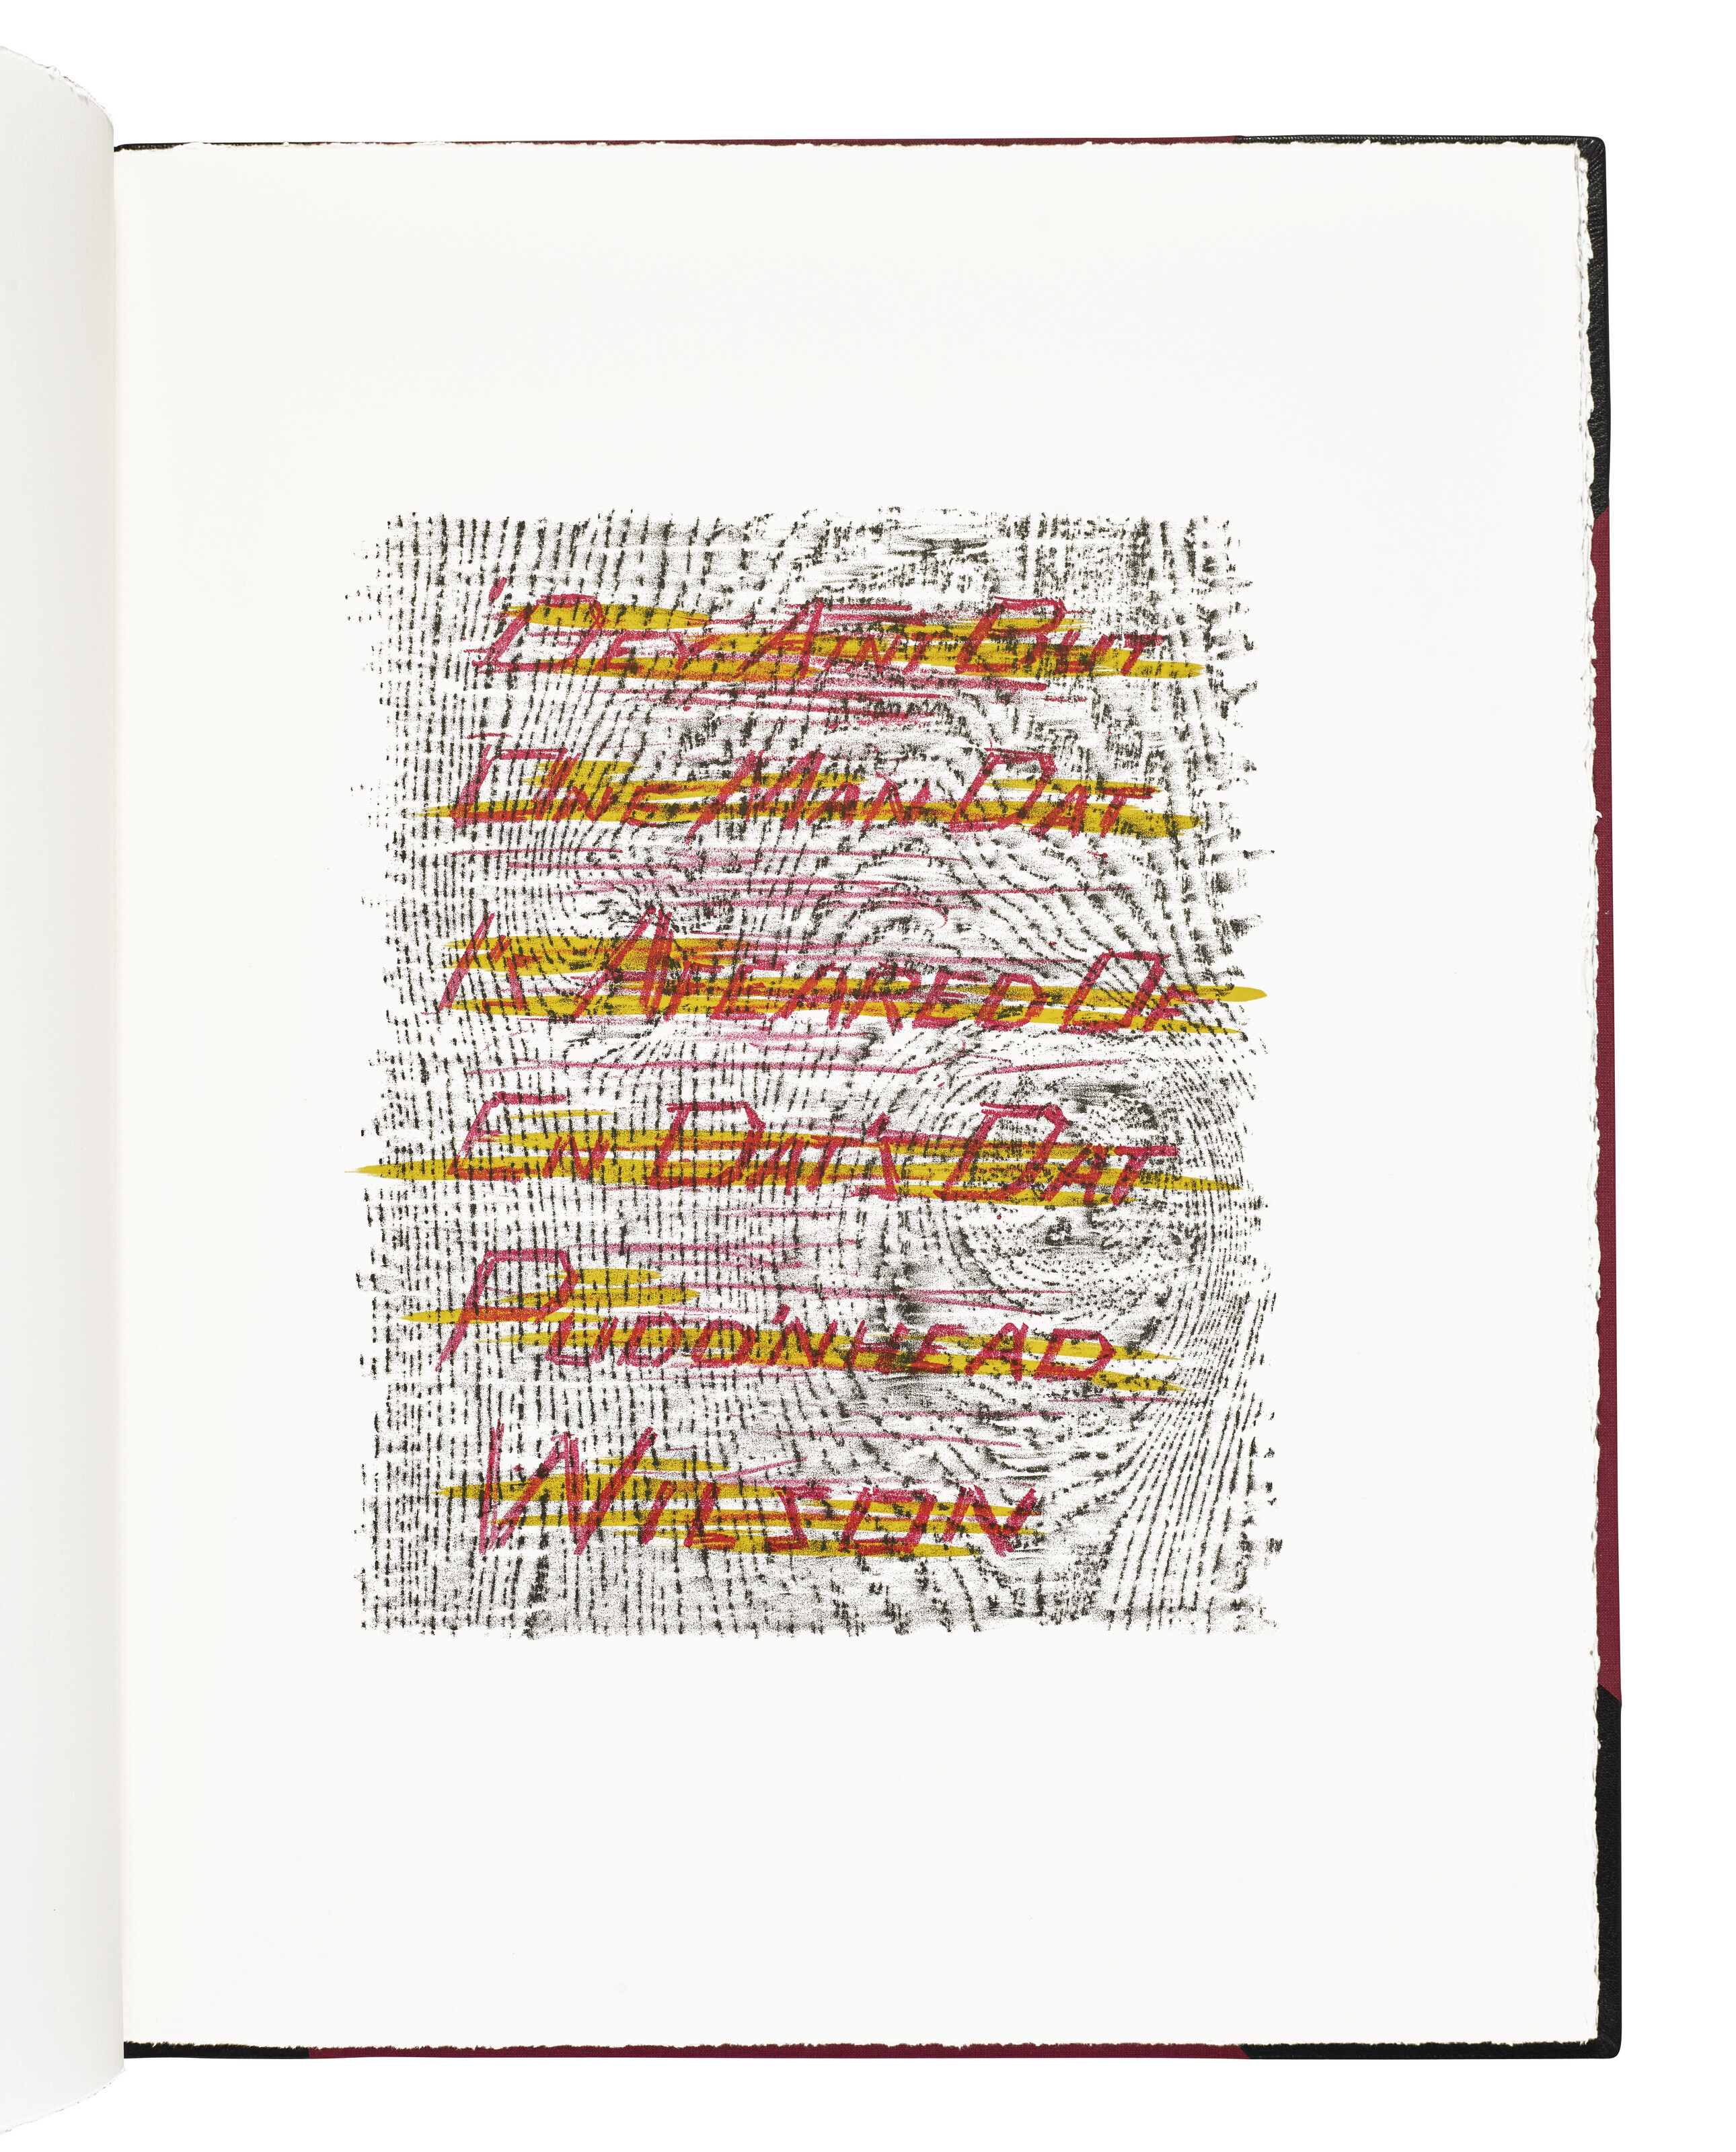 DEY AINT BUT
ONE MAN DAT
I' AFEARED OF
EN DAT'S DAT
PUDD'NHEAD
WILSON